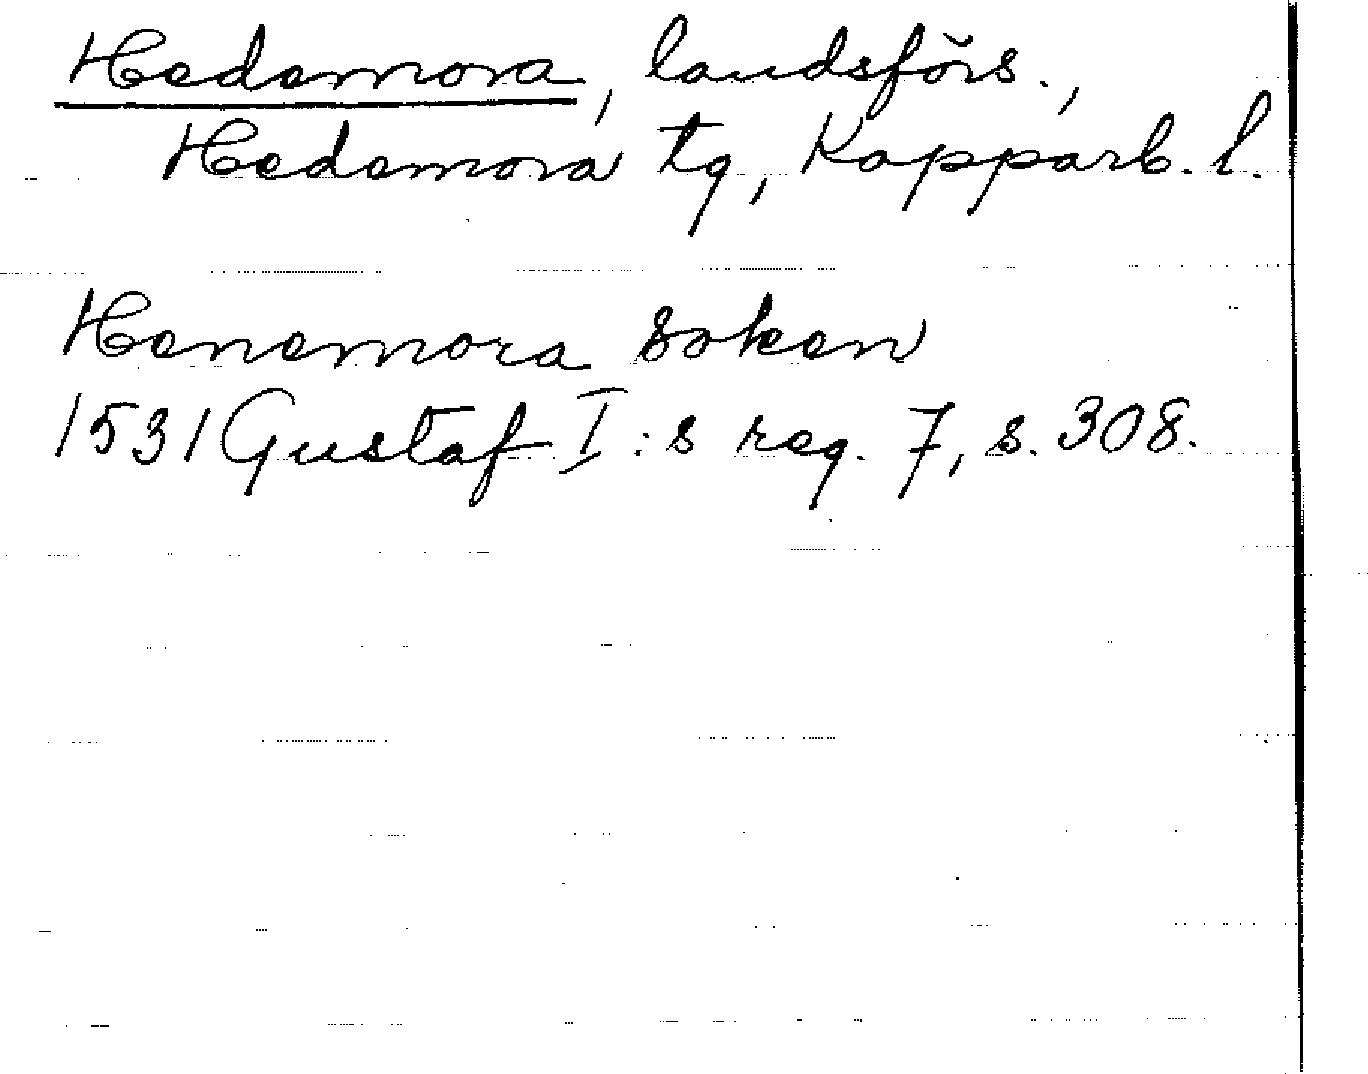 Hedemora, landsförs.,
Hedemora tg, Kopparb. l.
Henemora Soken
1531 Gustaf I:s reg. 7, s. 308.